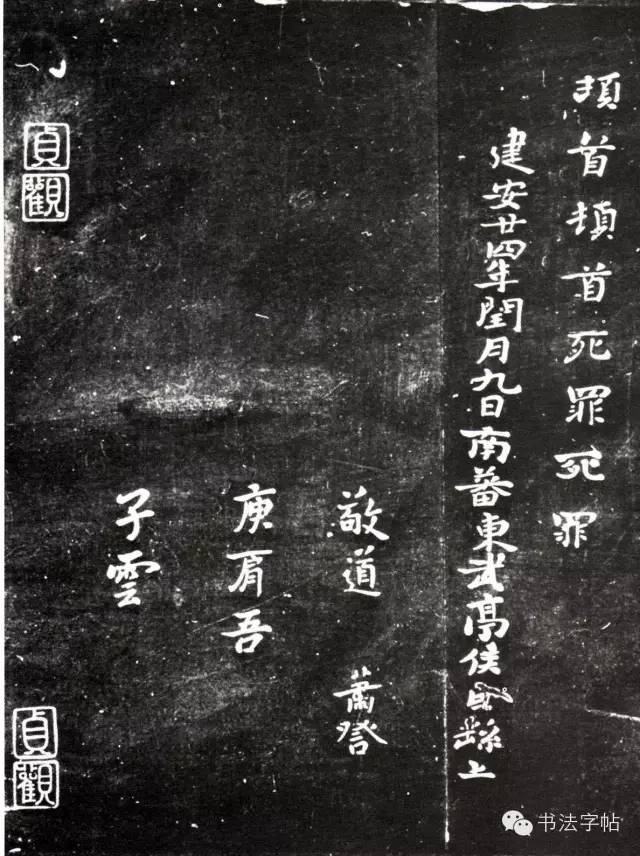 頓首頓首死罪死罪
建安廿四年閏月九日南蕃東武亭侯臣繇上
敬道 蕭詧
庾肩吾
子雲
貞觀
貞觀
书法字帖